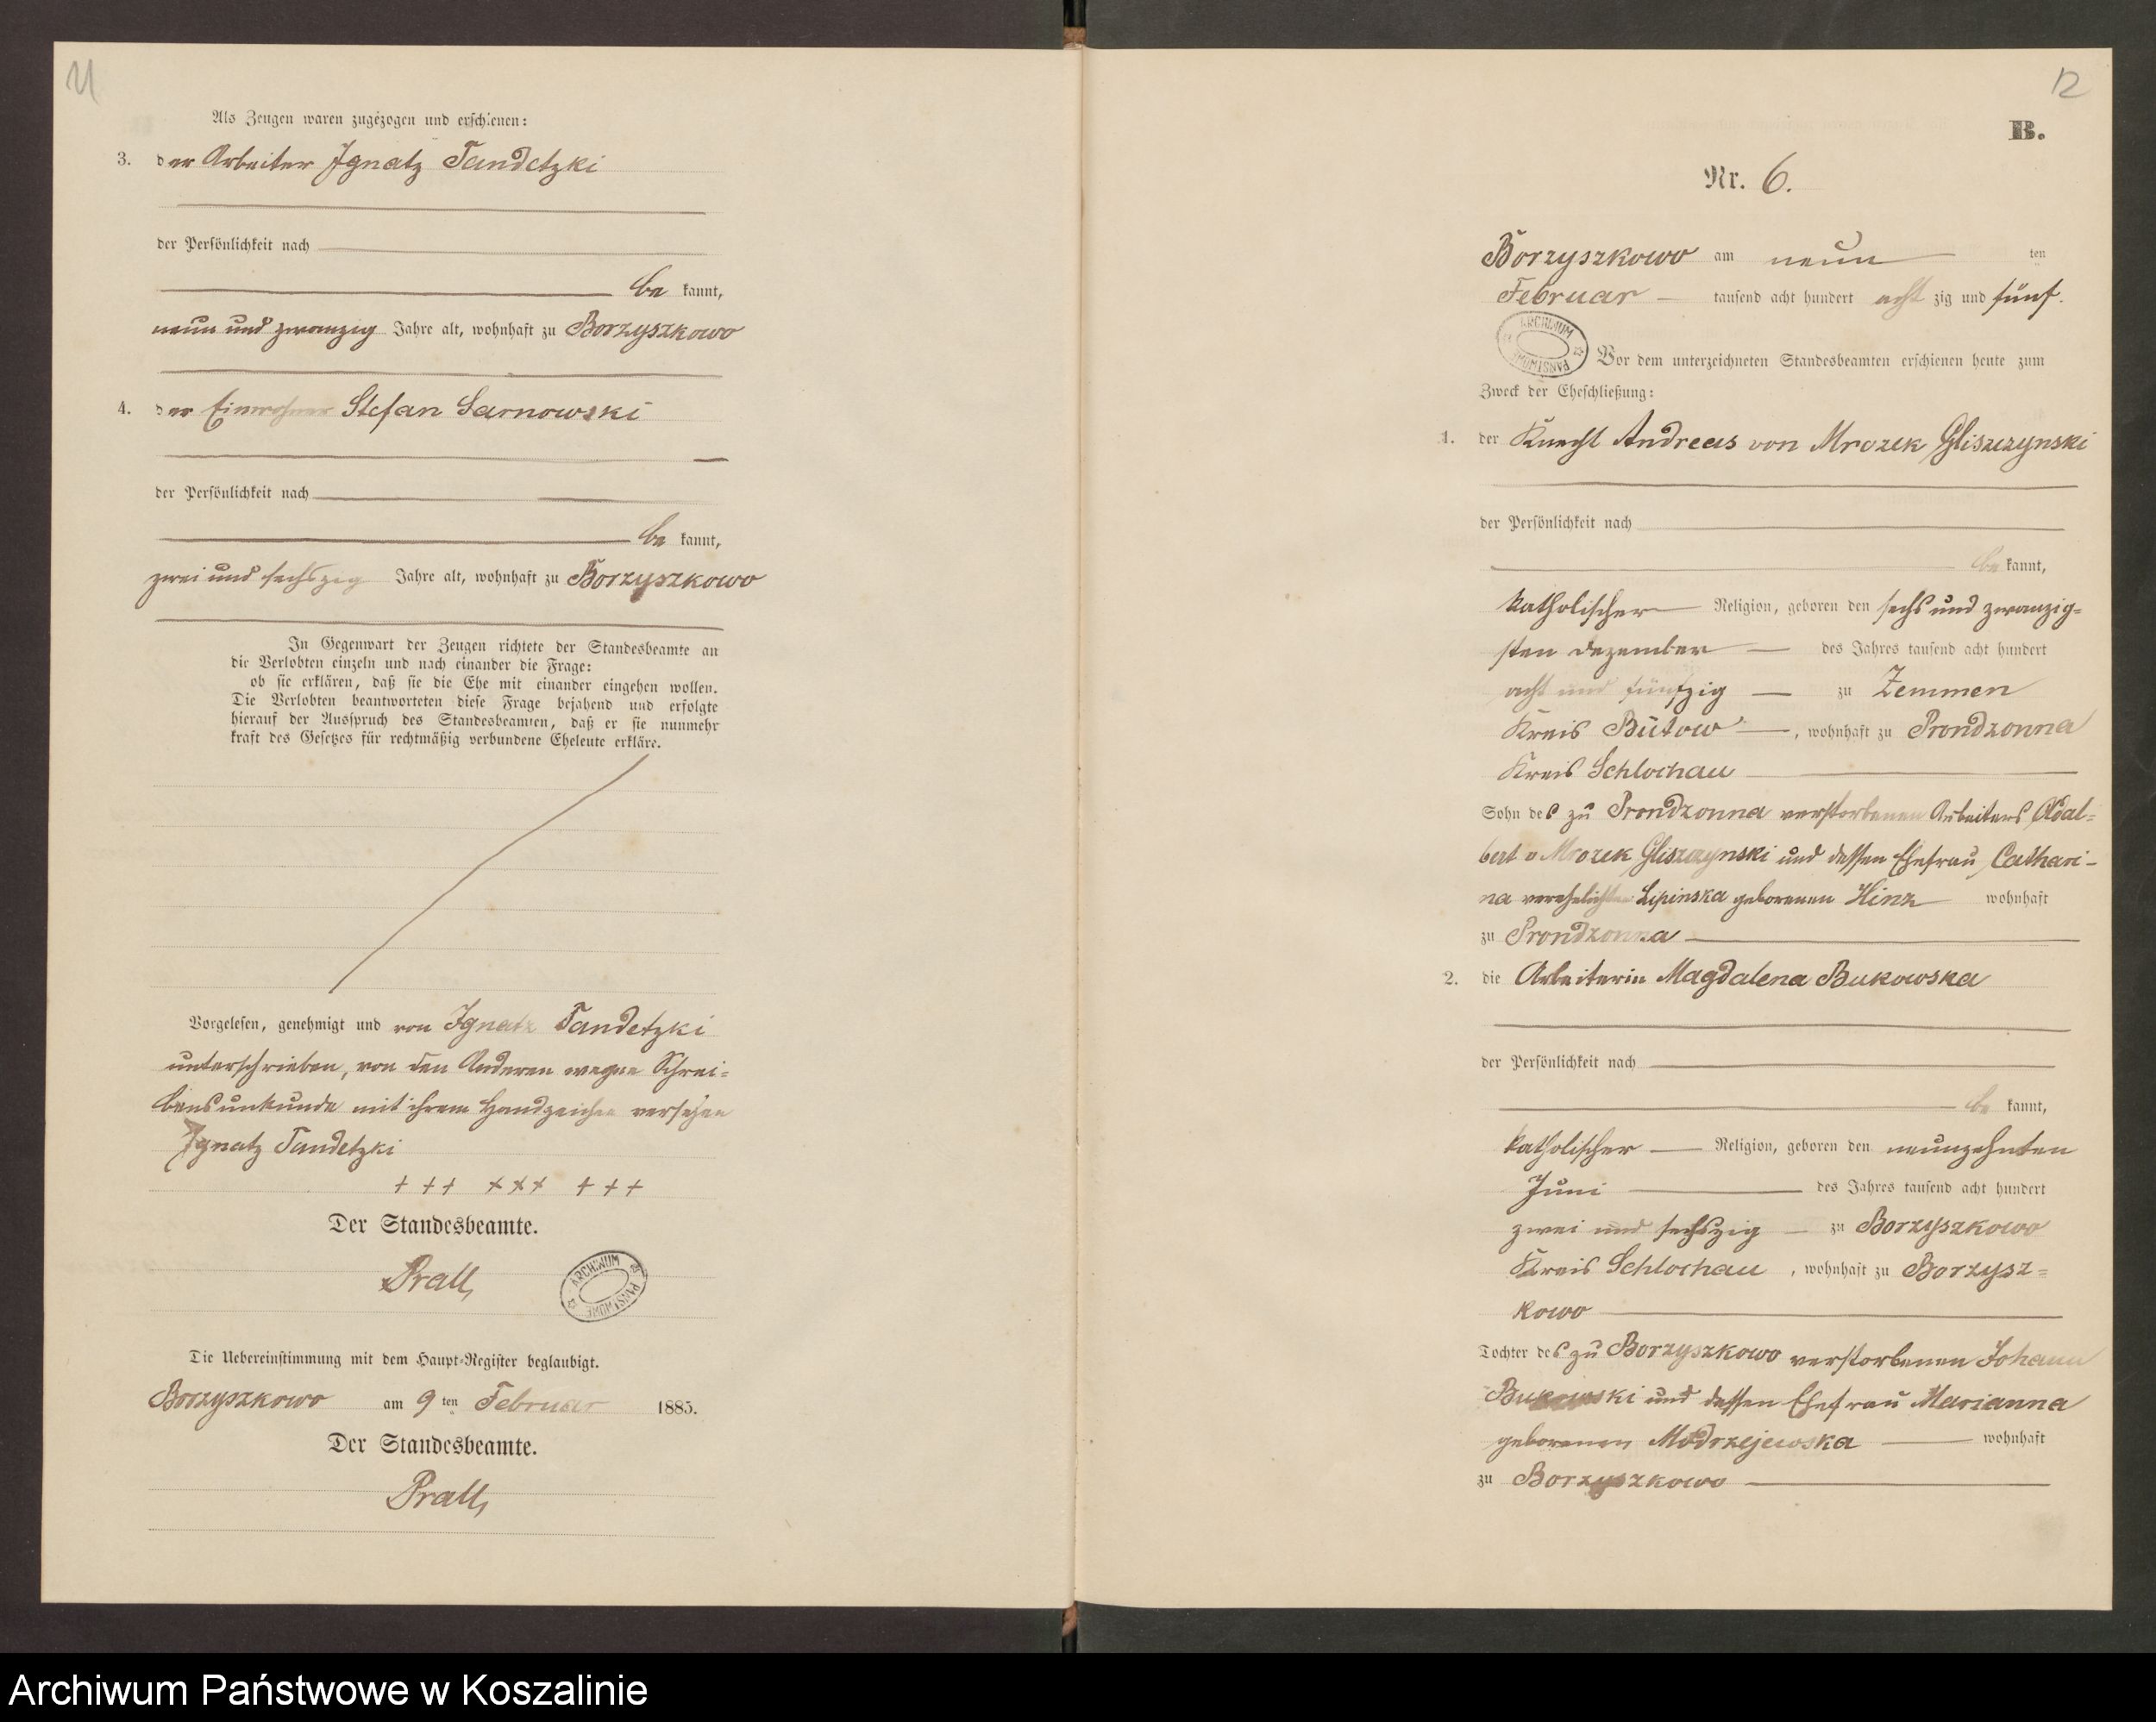 11
Als Zeugen waren zugezogen und erschienen:
3. der Arbeiter Ignatz Tandetzki
der Persönlichkeit nach
be kannt,
neun und zwanzig Jahre alt, wohnhaft zu Borzyszkowo
4. der Einwohner Stefan Sarnowski
der Persönlichkeit nach
be kannt,
zwei und sechszig Jahre alt, wohnhaft zu Borzyszkowo
In Gegenwart der Zeugen richtete der Standesbeamte an
die Verlobten einzeln und nach einander die Frage:
ob sie erklären, daß sie die Ehe mit einander eingehen wollen.
Die Verlobten beantworteten diese Frage bejahend und erfolgte
hierauf der Ausspruch des Standesbeamten, daß er sie nunmehr
kraft des Gesetzes für rechtmäßig verbundene Eheleute erkläre.
Vorgelesen, genehmigt und von Ignatz Tandetzki
unterschrieben, von den Anderen wegen Schrei=
bensunkunde mit ihrem Handzeichen versehen
Ignatz Tandetzki
+ + + + + + + + +
Der Standesbeamte.
Prall,
ARCHIWUM PAŃSTWOWE
Die Uebereinstimmung mit dem Haupt-Register beglaubigt.
Borzyszkowo am 9 ten Februar 1885.
Der Standesbeamte.
Prall,
12
B.
Nr. 6.
Borzyszkowo am neun ten
Februar tausend acht hundert acht zig und fünf.
ARCHIWUM PAŃSTWOWE
Vor dem unterzeichneten Standesbeamten erschienen heute zum
Zweck der Eheschließung:
1. der Knecht Andreas von Mrozek Gliszczynski
der Persönlichkeit nach
be kannt,
katholischer Religion, geboren den sechs und zwanzig=
sten Dezember des Jahres tausend acht hundert
acht und fünfzig zu Zemmen
Kreis Bütow, wohnhaft zu Prondzonna
Kreis Schlochau
Sohn des zu Prondzonna verstorbenen Arbeiters Adal=
bert v Mrozek Gliszczynski und dessen Ehefrau Cathari-
na verehelichten Lipinska geborenen Hinz wohnhaft
zu Prondzonna
2. die Arbeiterin Magdalena Bukowska
der Persönlichkeit nach
be kannt,
katholischer Religion, geboren den neunzehnten
Juni des Jahres tausend acht hundert
zwei und sechszig zu Borzyszkowo
Kreis Schlochau, wohnhaft zu Borzysz=
kowo
Tochter des zu Borzyszkowo verstorbenen Johann
Bukowski und dessen Ehefrau Marianna
geborenen Modrzejewska wohnhaft
zu Borzyszkowo
Archiwum Państwowe w Koszalinie